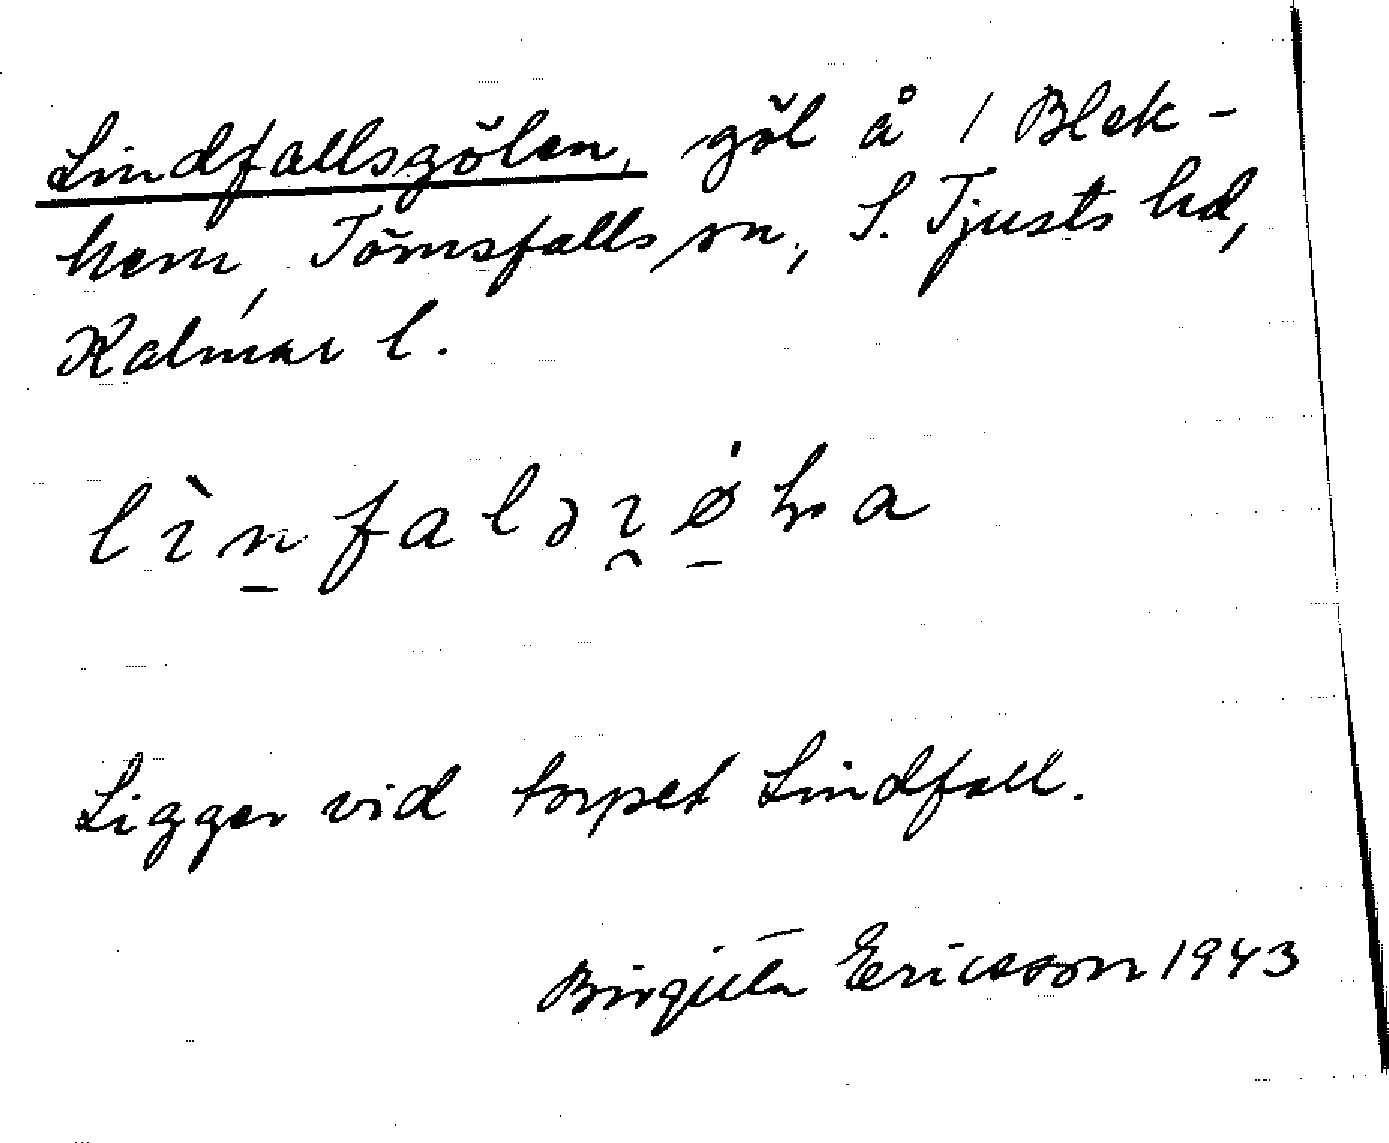 Lindfallsgölen, göl å 1 Blek-
hem, Törnsfalls sn, S. Tjusts hd,
Kalmar l.
Ligger vid torpet Lindfall.
Birgitta Ericsson 1943